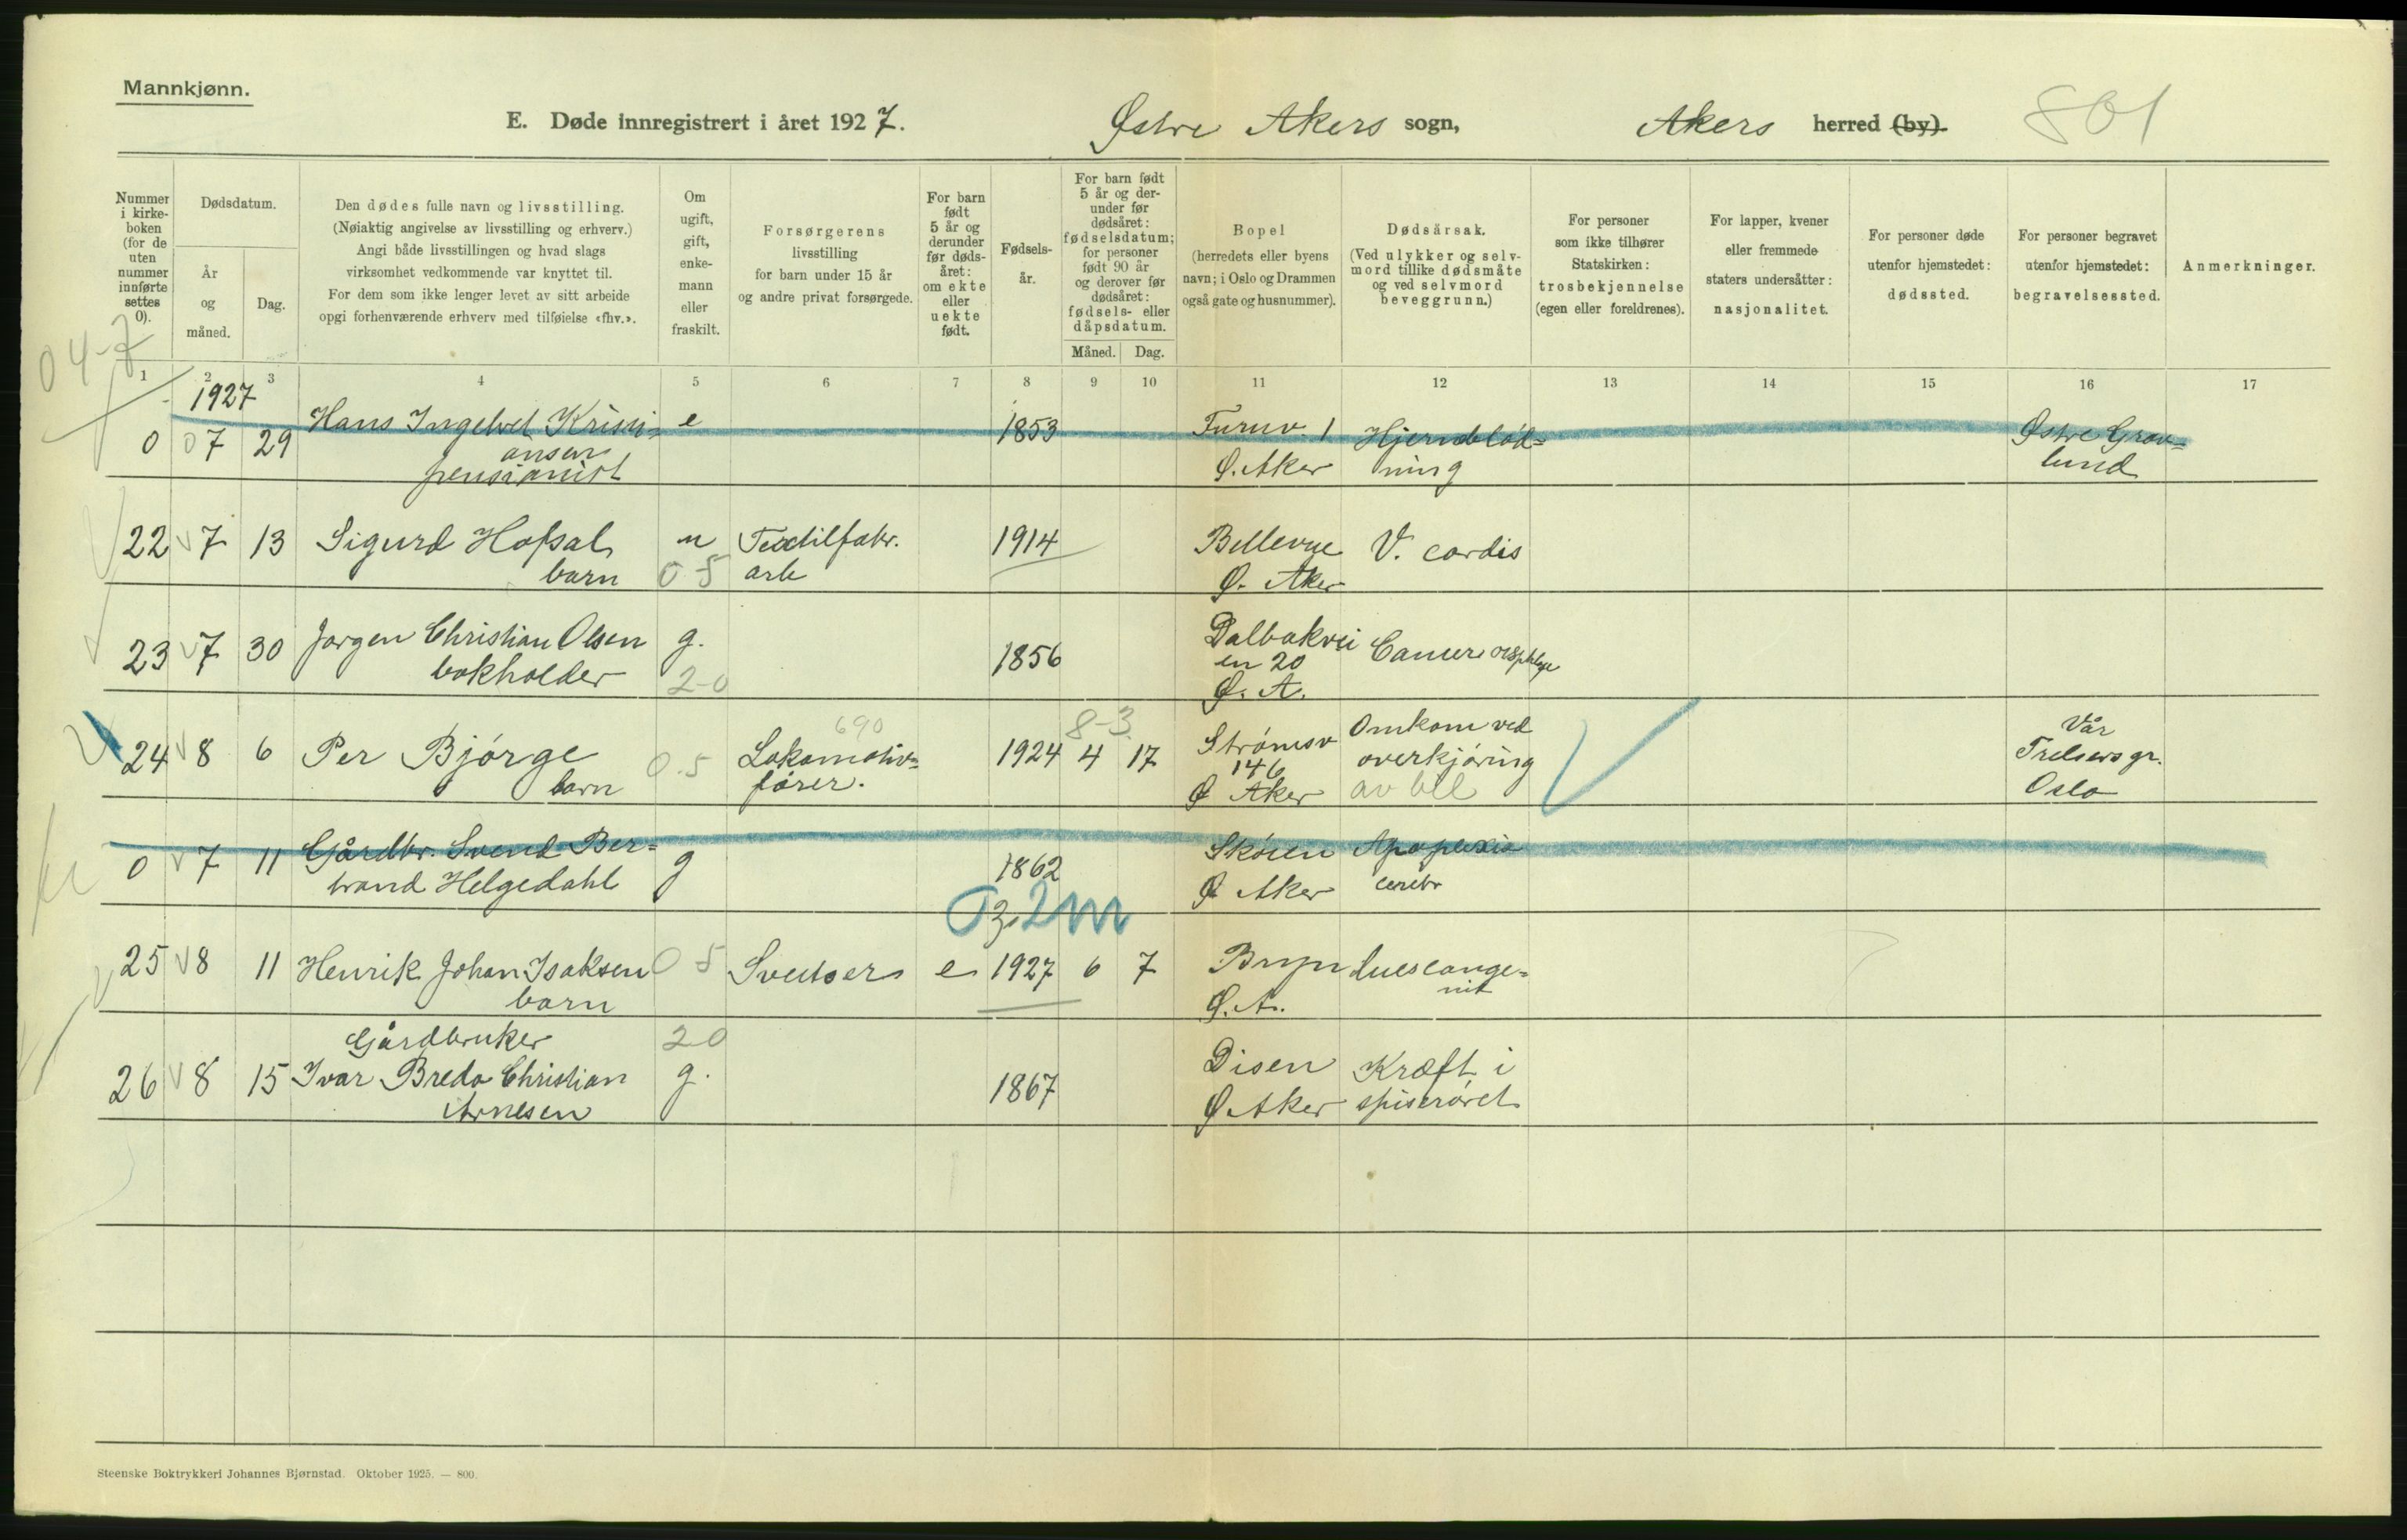 Mannkjønn.
E. Døde innregistrert i året 1927. Østre Akers sogn, Akers herred (by). 801
Nummer i kirke- boken (for de uten nummer innførte settes 0).
Dødsdatum.
År og måned.
Dag.
Den dødes fulle navn og livsstilling.
(Nøiaktig angivelse av livsstilling og erhverv.)
Angi både livsstillingen og hvad slags
virksomhet vedkommende var knyttet til.
For dem som ikke lenger levet av sitt arbeide
opgi forhenværende erhverv med tilføielse «fhv.».
Om ugift, gift, enke- mann eller fraskilt.
Forsørgerens
livsstilling
for barn under 15 år
og andre privat forsørgede.
For barn født 5 år og derunder før døds- året: om ekte eller uekte født.
Fødsels- år.
For barn født 5 år og der- under før dødsåret: fødselsdatum; for personer født 90 år og derover før dødsåret: fødsels- eller dåpsdatum.
Måned. Dag.
Bopel
(herredets eller byens
navn; i Oslo og Drammen
også gate og husnummer).
Dødsårsak.
(Ved ulykker og selv-
mord tillike dødsmåte
og ved selvmord
beveggrunn.)
For personer
som ikke tilhører
Statskirken:
trosbekjennelse
(egen eller foreldrenes).
For lapper, kvener
eller fremmede
staters undersåtter:
nasjonalitet.
For personer døde
utenfor hjemstedet:
dødssted.
For personer begravet
utenfor hjemstedet:
begravelsessted.
Anmerkninger.
04-7
1 2 3 4 5 6 7 8 9 10 11 12 13 14 15 16 17
1927
0 07 29 Hans Ingelvet Kristi= e 1853 Furuv. 1 Hjerneblød= Østre Grav=
ansen
pensjonist Ø. Aker ning lund
22 7 13 Sigurd Hofsal u Textilfabr. 1914 Bellevue V. cordis
barn 05 arb Ø. Aker
23 7 30 Jørgen Christian Olsen g. 1856 Dalbakvei Cancer
bokholder 2-0 en 20
Ø. A.
690 8-3
24 8 6 Per Bjørge 0.5 Lokomotiv= 1924 4 17 Strømsv Omkom ved Vår
barn fører. 146 overkjøring Frelsers gr.
Ø Aker av bil Oslo
0 7 11 Gårdbr. Svend Ber= g 1862 Skøien Apoplexia
trand Helgedahl Ø Aker cerebr
2m
25 8 11 Henrik Johan Isaksen 05 Sveitser e 1927 6 7 Bryn Lues conge=
barn Ø. A. nit
Gårdbruker 20
26 8 15 Ivar Breda Christian g. 1867 Disen Kræft i
Arnesen Ø Aker spiserøret
Steenske Boktrykkeri Johannes Bjørnstad. Oktober 1925. — 800.